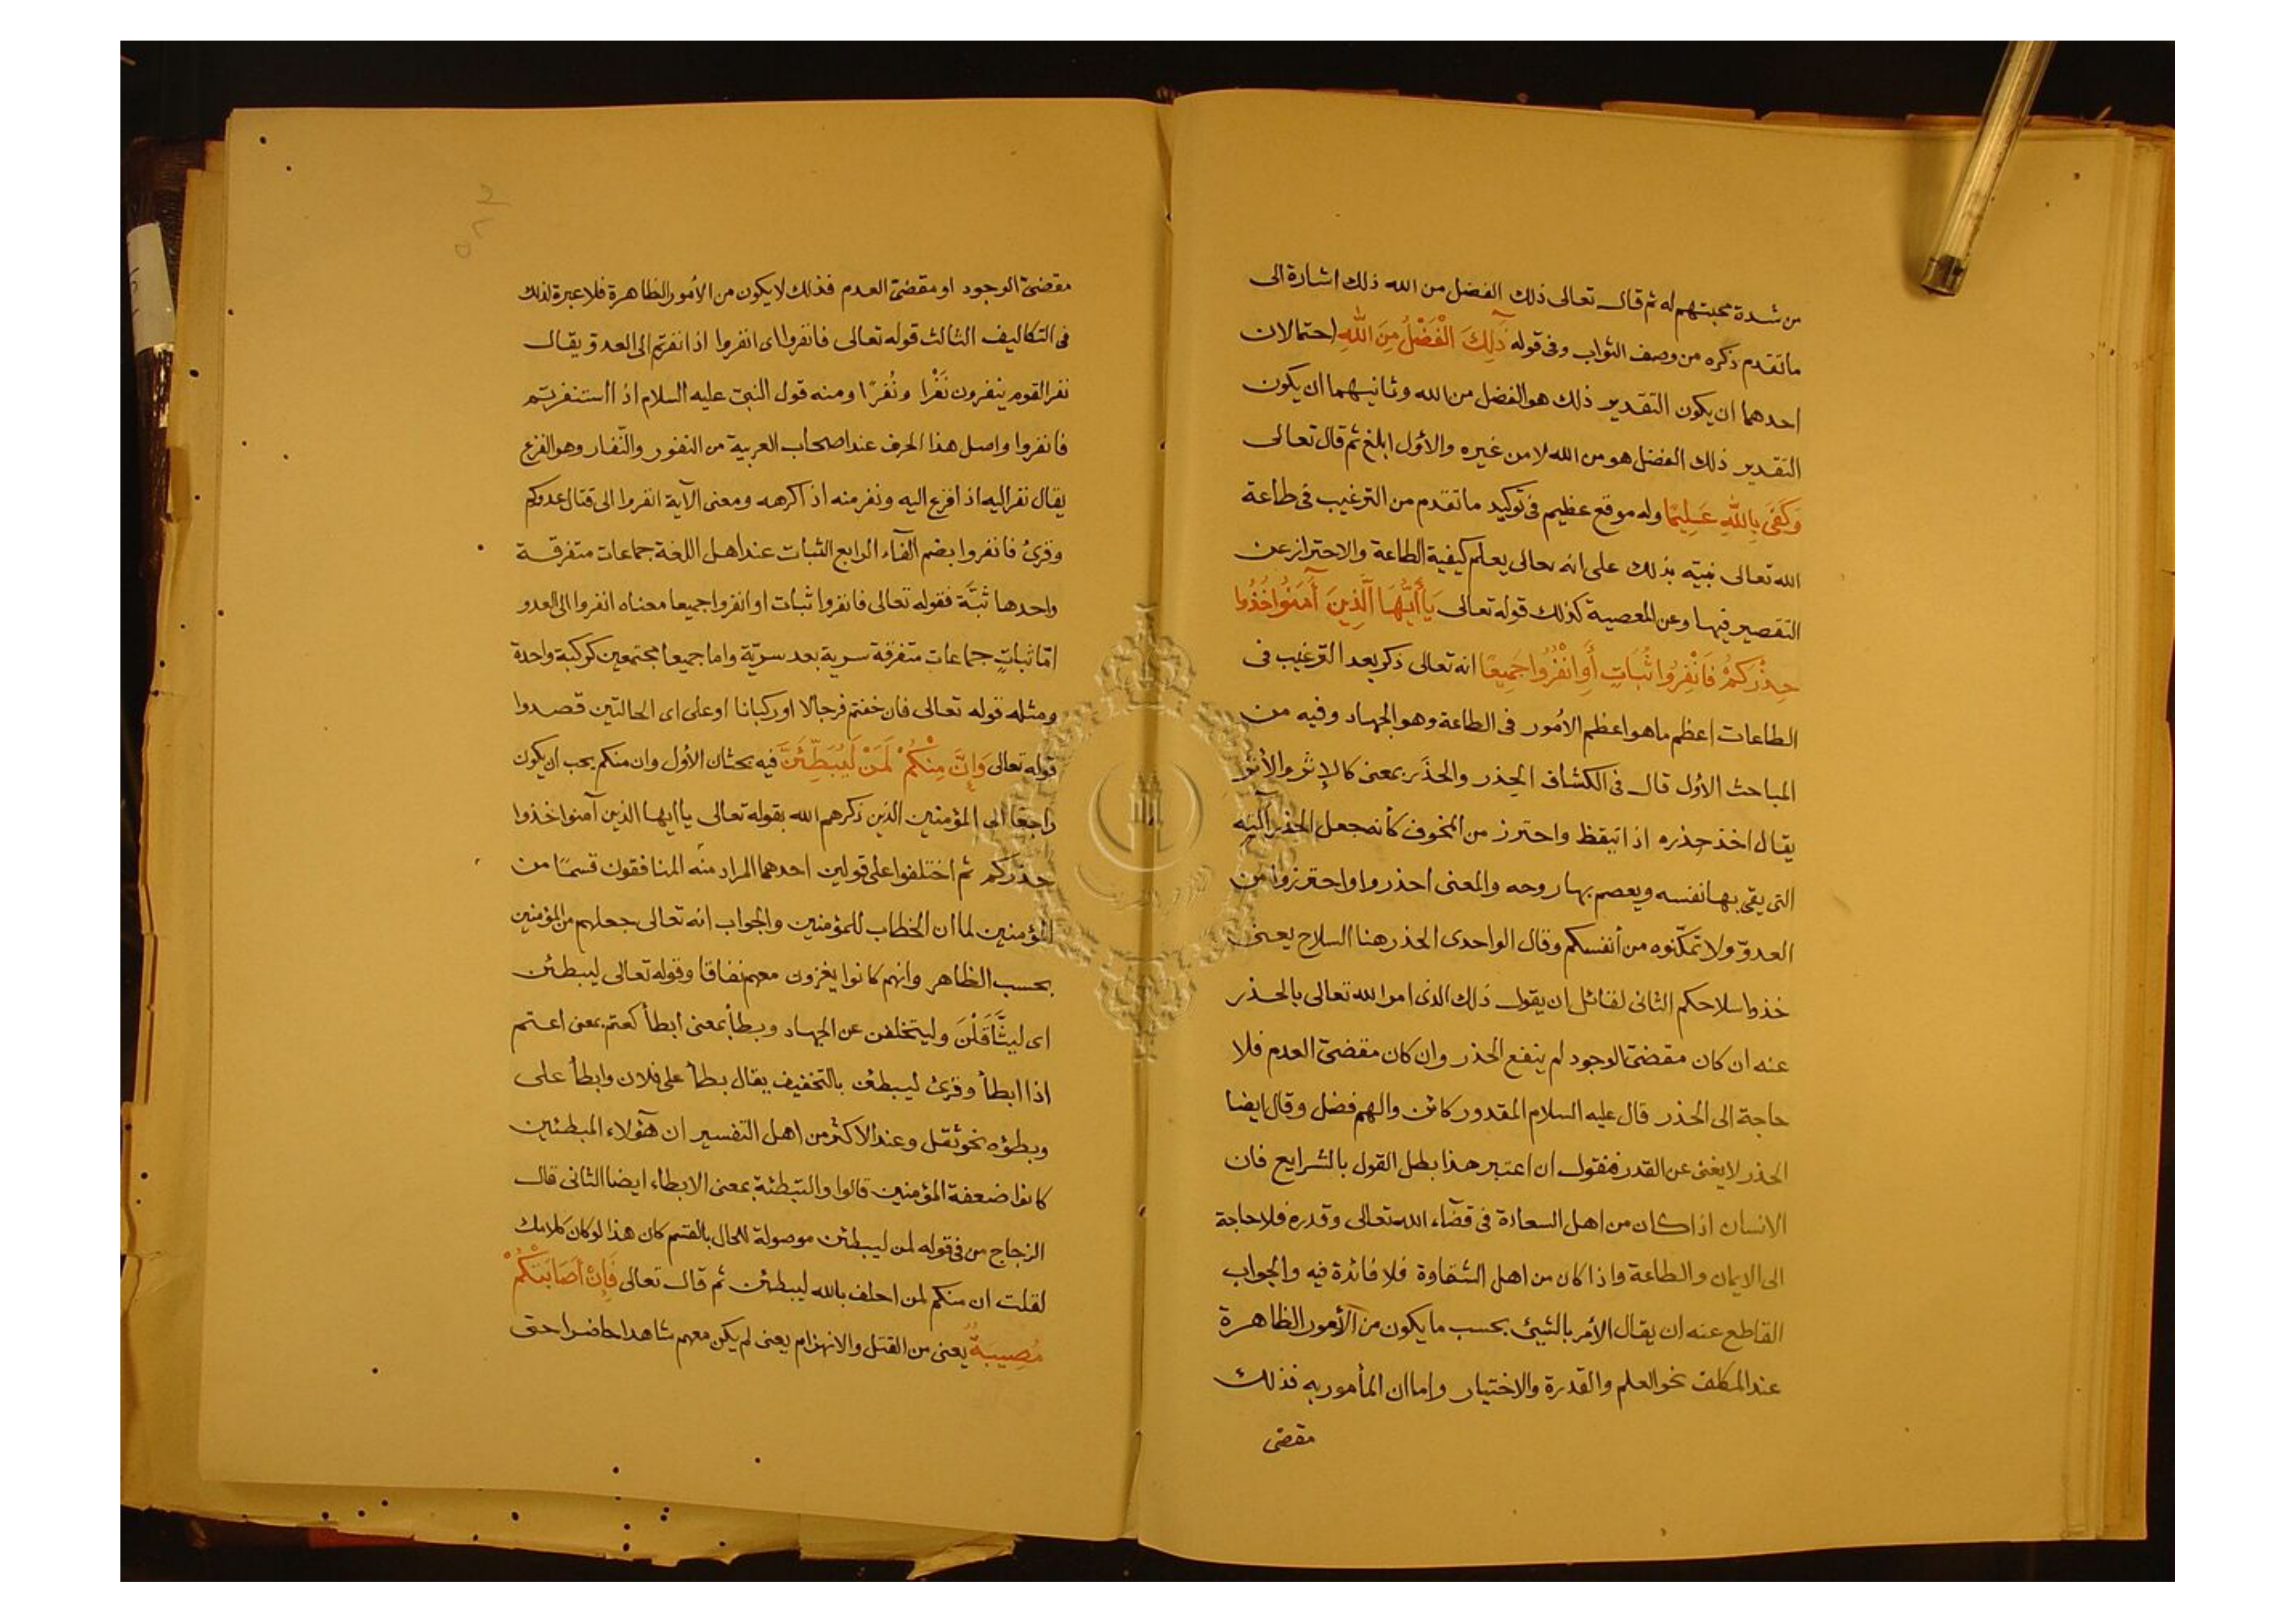 من شدة محبتهم له ثم قال تعالى ذلك الفضل من الله ذلك اشارة الى
ما تقدم ذكره من وصف الثواب وفى قوله ذَلِكَ الْفَضْلُ مِنَ اللَّهِ احتمالان
احدهما ان يكون التقدير ذلك هو الفضل من الله وثانيهما ان يكون
التقدير ذلك الفضل هو من الله لا من غيره والأول ابلغ ثم قال تعالى
وَكَفَى بِاللَّهِ عَلِيمًا وله موقع عظيم فى توكيد ما تقدم من الترغيب فى طاعة
الله تعالى نبيّه بذلك على انه تعالى يعلم كيفية الطاعة والاحتراز عن
التقصير فيها وعن المعصية كذلك قوله تعالى يَا أَيُّهَا الَّذِينَ آمَنُوا خُذُوا
حِذْرَكُمْ فَانْفِرُوا ثُبَاتٍ أَوِ انْفِرُوا جَمِيعًا انه تعالى ذكر بعد الترغيب فى
الطاعات اعظم ما هو اعظم الأمور فى الطاعة وهو الجهاد وفيه من
المباحث الأول قال فى الكشاف الحِذر والحذَر بمعنى كالإثر والأثر
يقال اخذ حذره اذا تيقظ واحترز من المخوف كأنه جعل الحذر آلته
التى يقى بها نفسه ويعصم بها روحه والمعنى احذروا واحترزوا من
العدوّ ولا تمكّنوه من أنفسكم وقال الواحدى الحذر هنا السلاح يعنى
خذوا سلاحكم الثانى لقائل ان يقول ذلك الذى امر الله تعالى بالحذر
عنه ان كان مقضىّ الوجود لم ينفع الحذر وان كان مقضىّ العدم فلا
حاجة الى الحذر قال عليه السلام المقدور كائن والهم فضل وقال ايضا
الحذر لا يغنى عن القدر فنقول ان اعتبر هذا بطل القول بالشرايع فان
الانسان اذا كان من اهل السعادة فى قضاء الله تعالى وقدره فلا حاجة
الى الايمان والطاعة واذا كان من اهل الشقاوة فلا فائدة فيه والجواب
القاطع عنه ان يقال الأمر بالشيئ بحسب ما يكون من الأمور الظاهرة
عند المكلف نحو العلم والقدرة والاختيار واما ان المأمور به فذلك
مقضى
مقضىّ الوجود او مقضىّ العدم فذلك لا يكون من الأمور الظاهرة فلا عبرة لذلك
فى التكاليف الثالث قوله تعالى فانفروا اى انفروا اذا نفرتم الى العدو يقال
نفر القوم ينفرون نَفْرا ونُفرًا ومنه قول النبىّ عليه السلام اذا استنفرتم
فانفروا واصل هذا الحرف عند اصحاب العربية من النفور والنّفار وهو الفزع
يقال نفر اليه اذا فزع اليه ونفر منه اذا كرهه ومعنى الآية انفروا الى قتال عدوكم
وقرئ فانفروا بضم الفآء الرابع الثبات عند اهل اللغة جماعات متفرقة
واحدها ثبَّة فقوله تعالى فانفروا ثبات او انفروا جميعا معناه انفروا الى العدو
امّا ثباتٍ جماعات متفرقة سرية بعد سريّة واما جميعا مجتمعين كوكبة واحدة
ومثله قوله تعالى فان خفتم فرجالا او ركبانا او على اى الحالتين قصدوا
قوله تعالى وَإِنَّ مِنْكُمْ لَمَنْ لَيُبَطِّئَنَّ فيه بحثان الأول وان منكم يجب ان يكون
راجعًا الى المؤمنين الذين ذكرهم الله بقوله تعالى يا ايها الذين آمنوا خذوا
حذركم ثم اختلفوا على قولين احدهما المراد منه المنافقون قسمًا من
المؤمنين لما ان الخطاب للمؤمنين والجواب انه تعالى جعلهم من المؤمنين
بحسب الظاهر وانهم كانوا يغزون معهم نفاقا وقوله تعالى ليبطئن
اى ليثَّاقَلْنَ وليتخلفن عن الجهاد وبطأ بمعنى ابطأ كعتم بمعنى اعتم
اذا ابطأ وقرئ ليبطئن بالتخفيف يقال بطأ على فلان وابطأ على
وبطؤه نحو ثقل وعند الاكثر من اهل التفسير ان هؤلاء المبطئين
كانوا ضعفة المؤمنين قالوا والتبطئة بمعنى الابطاء ايضا الثانى قال
الزجاج من فى قوله لمن ليبطئن موصولة للحال بالقسم كان هذا لو كان كلامك
لقلت ان منكم لمن احلف بالله ليبطئن ثم قال تعالى فَإِنْ أَصَابَتْكُمْ
مُصِيبَةٌ يعنى من القتل والانهزام يعنى لم يكن معهم شاهدا حاضرا حتى